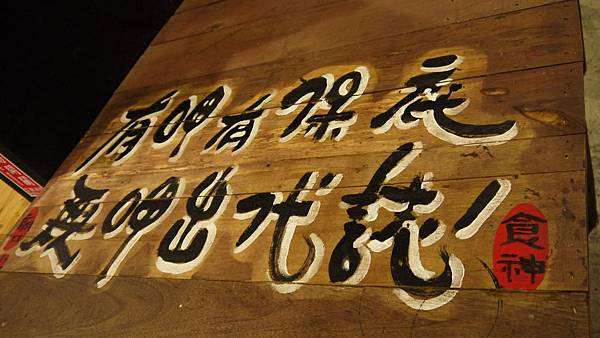 有呷有保庇
無呷出代誌!
食神